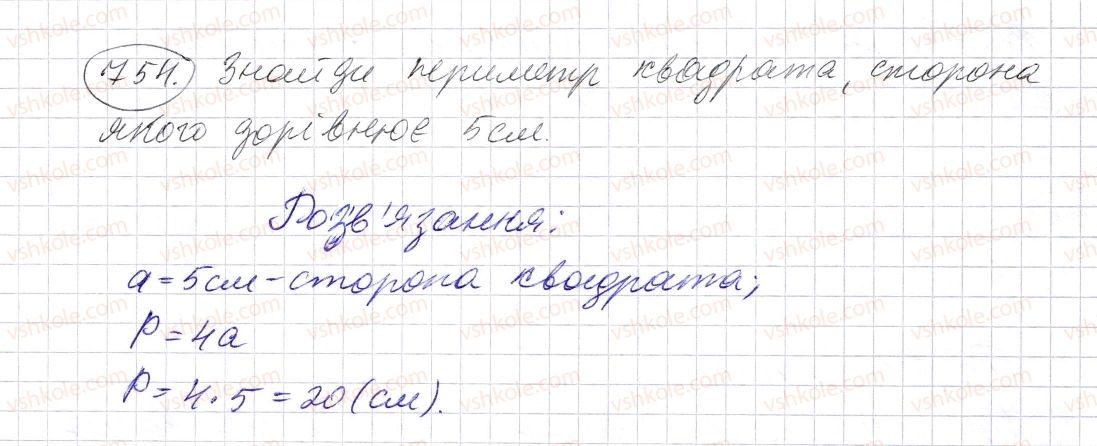 754. Знайди периметр квадрата, сторона
якого дорівнює 5см.
Розв'язання:
a = 5см - сторона квадрата;
P = 4a
P = 4 · 5 = 20 (см).